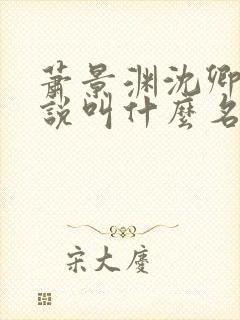 蕭景渊沈卿
說叫什麼名
宋大慶